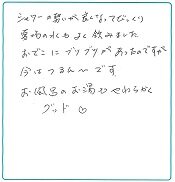 シャワーの勢いが良くなってびっくり
夏場の水もよく飲みました
おでこにブツブツがあったのですが
今はつるん〜です
お風呂のお湯もやわらかく
グッド♡